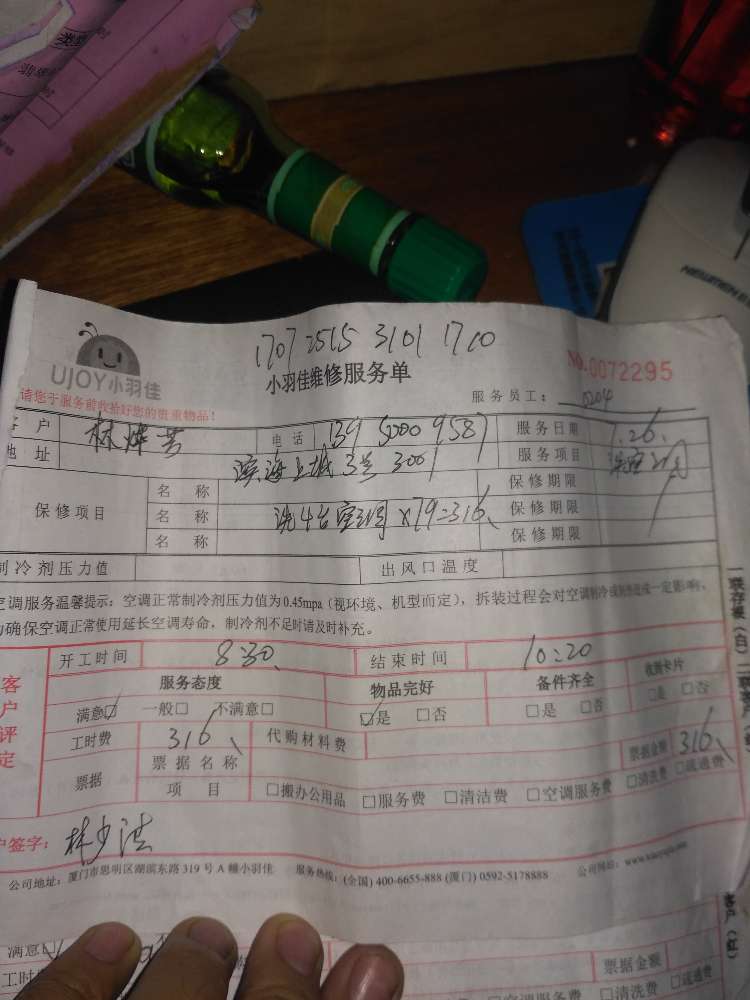 1707 2515 3101 1710
UJOY小羽佳
小羽佳维修服务单
NO.0072295
请您于服务前收拾好您的贵重物品!
服务员工: 0204
客 户 林 电 话 139 5000 9587 服务日期 1.26.
地 址 滨海上城3兰3001 服务项目
保修项目
名 称 保修期限
名 称 洗4台空调×79=316、 保修期限
名 称 保修期限
制冷剂压力值 出风口温度
空调服务温馨提示: 空调正常制冷剂压力值为0.45mpa (视环境、机型而定), 拆装过程会对空调制冷或制热造成一定影响,
为确保空调正常使用延长空调寿命, 制冷剂不足时请及时补充。
开工时间 8:30 结束时间 10:20
客户评定
服务态度 物品完好 备件齐全 收到卡片
满意☑ 一般□ 不满意□ ☑是 □否 □是 □否 □是 □否
工时费 316、 代购材料费 票据金额 316、
票据 票据名称
项 目 □搬办公用品 □服务费 □清洁费 □空调服务费 □清洗费 □疏通费
户签字: 林少洪
公司地址: 厦门市思明区湖滨东路 319 号 A 幢小羽佳 服务热线: (全国) 400-6655-888 (厦门) 0592-5178888 公司网址:
满意
工时
票据金额
空调服务费 □清洗费 □疏通费